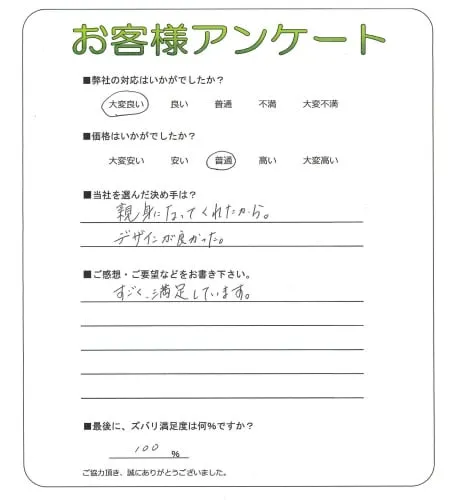 お客様アンケート
■弊社の対応はいかがでしたか？
大変良い 良い 普通 不満 大変不満
■価格はいかがでしたか？
大変安い 安い 普通 高い 大変高い
■当社を選んだ決め手は？
親身になってくれたから。
デザインが良かった。
■ご感想・ご要望などをお書き下さい。
すごく、満足しています。
■最後に、ズバリ満足度は何%ですか？
100 %
ご協力頂き、誠にありがとうございました。